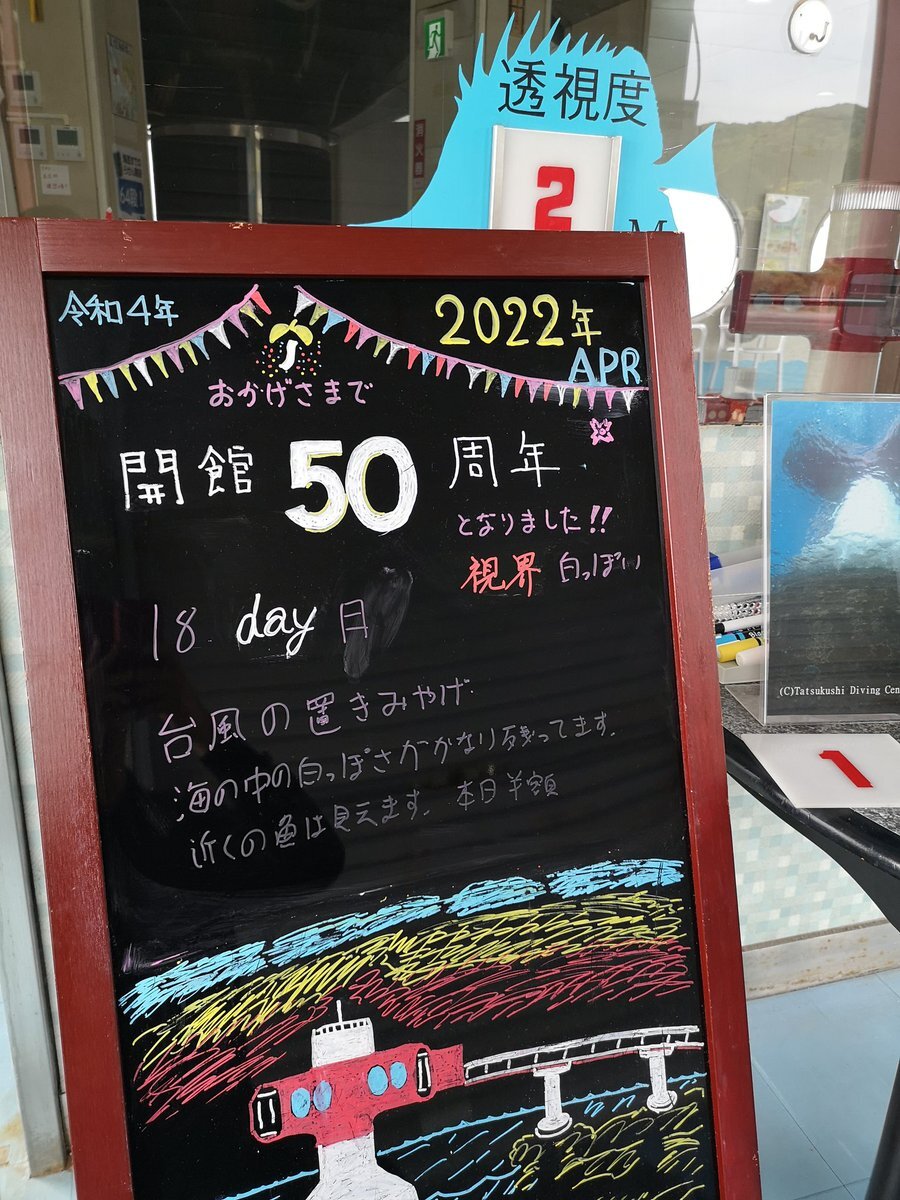 透視度
2
M
消火栓
令和4年
2022年
APR
おかげさまで
開館50周年
となりました!!
視界 白っぽい
18 day 日
台風の置きみやげ
海の中の白っぽさがかなり残ってます。
近くの魚は見えます。本日半額
(C)Tatsukushi Diving Cen
1